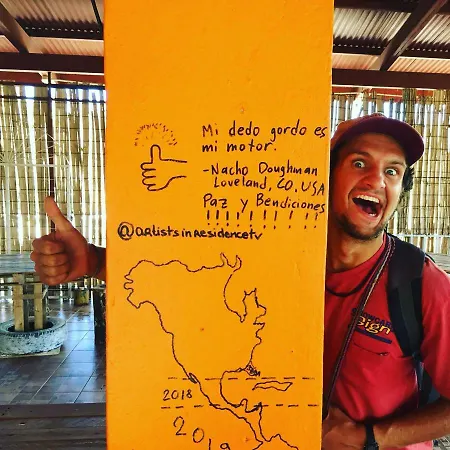 Mi dedo gordo es
mi motor.
-Nacho Doughman
Loveland, CO. USA
Paz y Bendiciones
!!!!!!!!!
@artistsinresidencetv
2018
2019